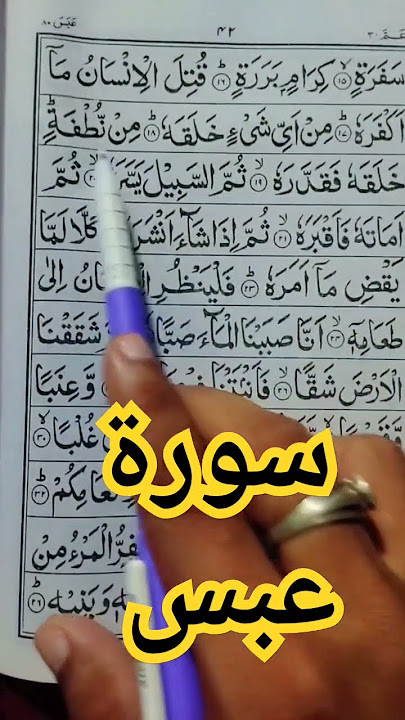 عَبَسَ ٨٠
٤٢
عَمَّ ٣٠
سَفَرَةٍ ۙ﴿١٥﴾ كِرَامٍۭ بَرَرَةٍ ؕ﴿١٦﴾ قُتِلَ الْاِنْسَانُ مَاۤ
اَكْفَرَهٗ ؕ﴿١٧﴾ مِنْ اَیِّ شَیْءٍ خَلَقَهٗ ؕ﴿١٨﴾ مِنْ نُّطْفَةٍ ؕ
خَلَقَهٗ فَقَدَّرَهٗ ۙ﴿١٩﴾ ثُمَّ السَّبِیْلَ یَسَّرَ ۙ﴿٢٠﴾ ثُمَّ
اَمَاتَهٗ فَاَقْبَرَهٗ ۙ﴿٢١﴾ ثُمَّ اِذَا شَآءَ اَنْشَرَ كَلَّا لَمَّا
یَقْضِ مَاۤ اَمَرَهٗ ؕ﴿٢٣﴾ فَلْیَنْظُرِ اِلٰی
طَعَامِهٖۤ ۙ﴿٢٤﴾ اَنَّا صَبَبْنَا الْمَآءَ صَبًّا شَقَقْنَا
الْاَرْضَ شَقًّا ۙ﴿٢٦﴾ فَاَنْۢبَتْنَا وَّعِنَبًا
غُلْبًا ۙ﴿٣٠﴾
سورة
﴿٣٢﴾
الْمَرْءُ مِنْ
عبس
وَبَنِیْهِ ؕ﴿٣٦﴾